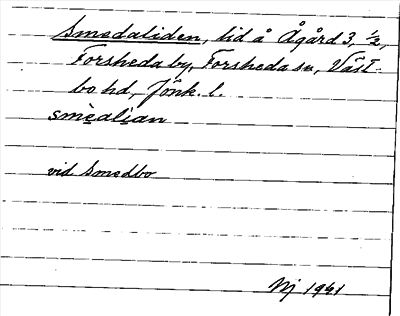 Smedaliden, lid å Ågård 3, ½,
Forsheda by, Forsheda sn, Väst-
bo hd, Jönk. l.
smèalian
vid Smedbo
Nj 1941